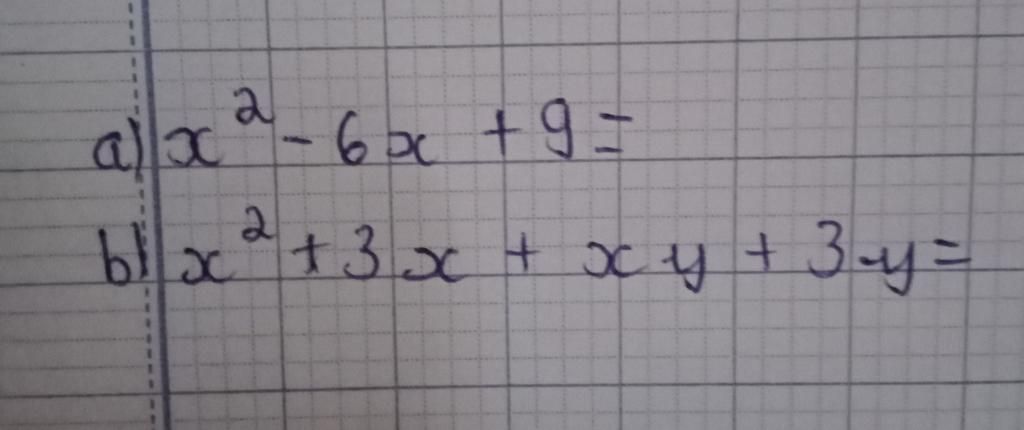 a) x² - 6x + 9 =
b) x² + 3x + xy + 3y =